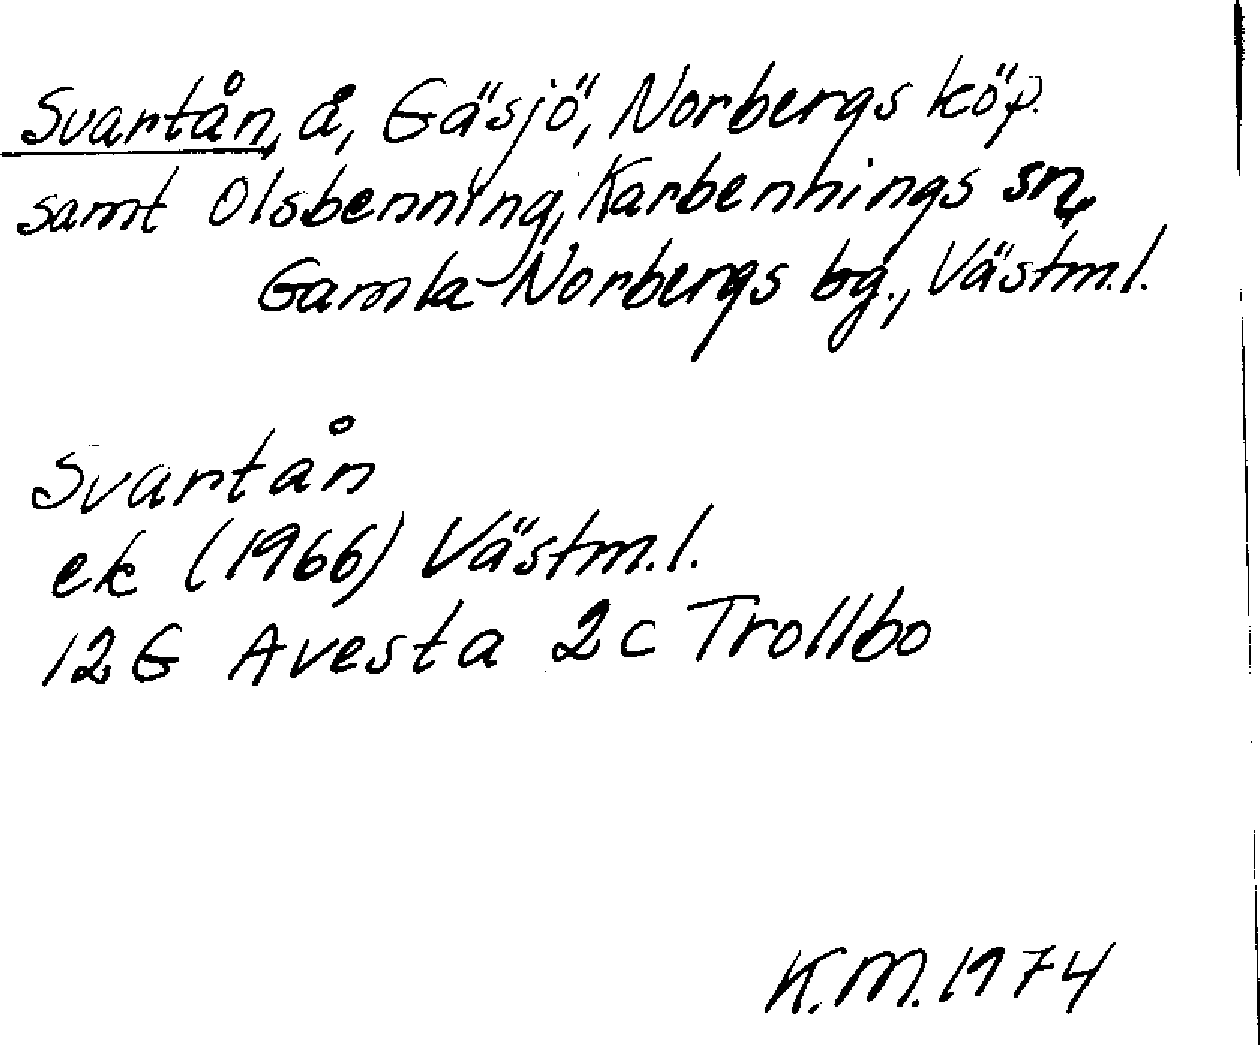 Svartån, å, Gäsjö, Norbergs köp.
samt Olsbenning, Karbennings sn,
Gamla Norbergs bg., Västm.l.
Svartån
ek (1966) Västm.l.
12G Avesta 2c Trollbo
K.M. 1974